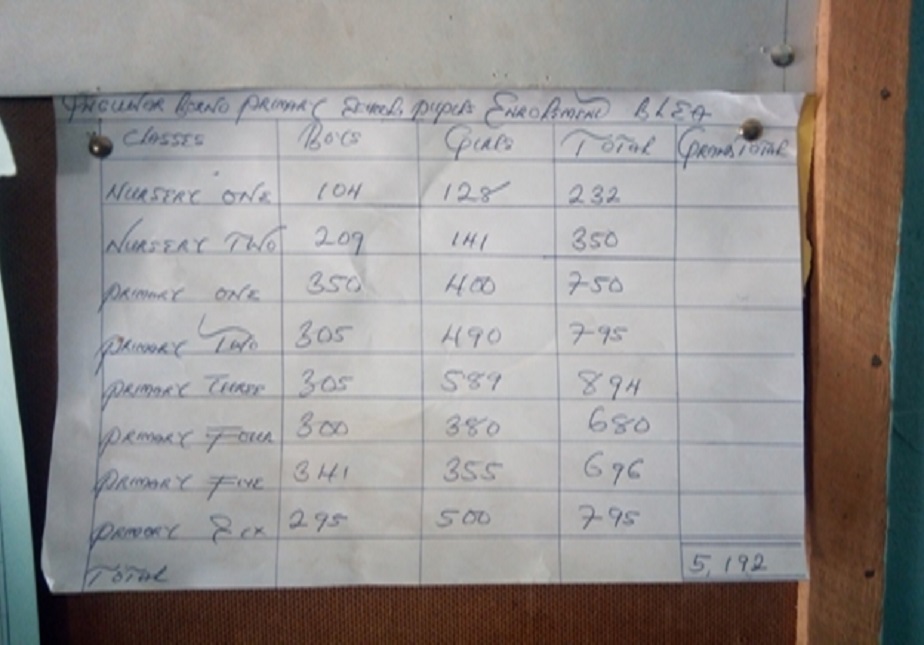 BORNO PRIMARY SCHOOL PUPILS ENROLMENT BLEA
CLASSES BOYS GIRLS TOTAL GRAND TOTAL
NURSERY ONE 104 128 232
NURSERY TWO 209 141 350
PRIMARY ONE 350 400 750
PRIMARY TWO 305 490 795
PRIMARY THREE 305 589 894
PRIMARY FOUR 300 380 680
PRIMARY FIVE 341 355 696
PRIMARY SIX 295 500 795
TOTAL 5,192